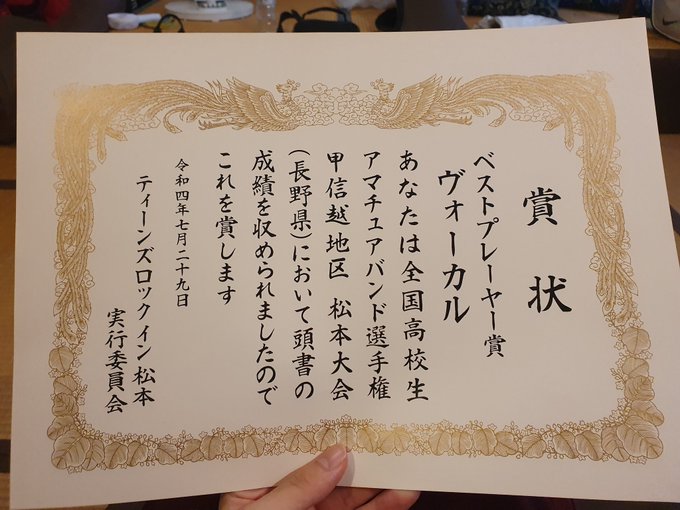 賞状
ベストプレーヤー賞
ヴォーカル
あなたは全国高校生
アマチュアバンド選手権
甲信越地区 松本大会
(長野県)において頭書の
成績を収められましたので
これを賞します
令和四年七月二十九日
ティーンズロックイン松本
実行委員会